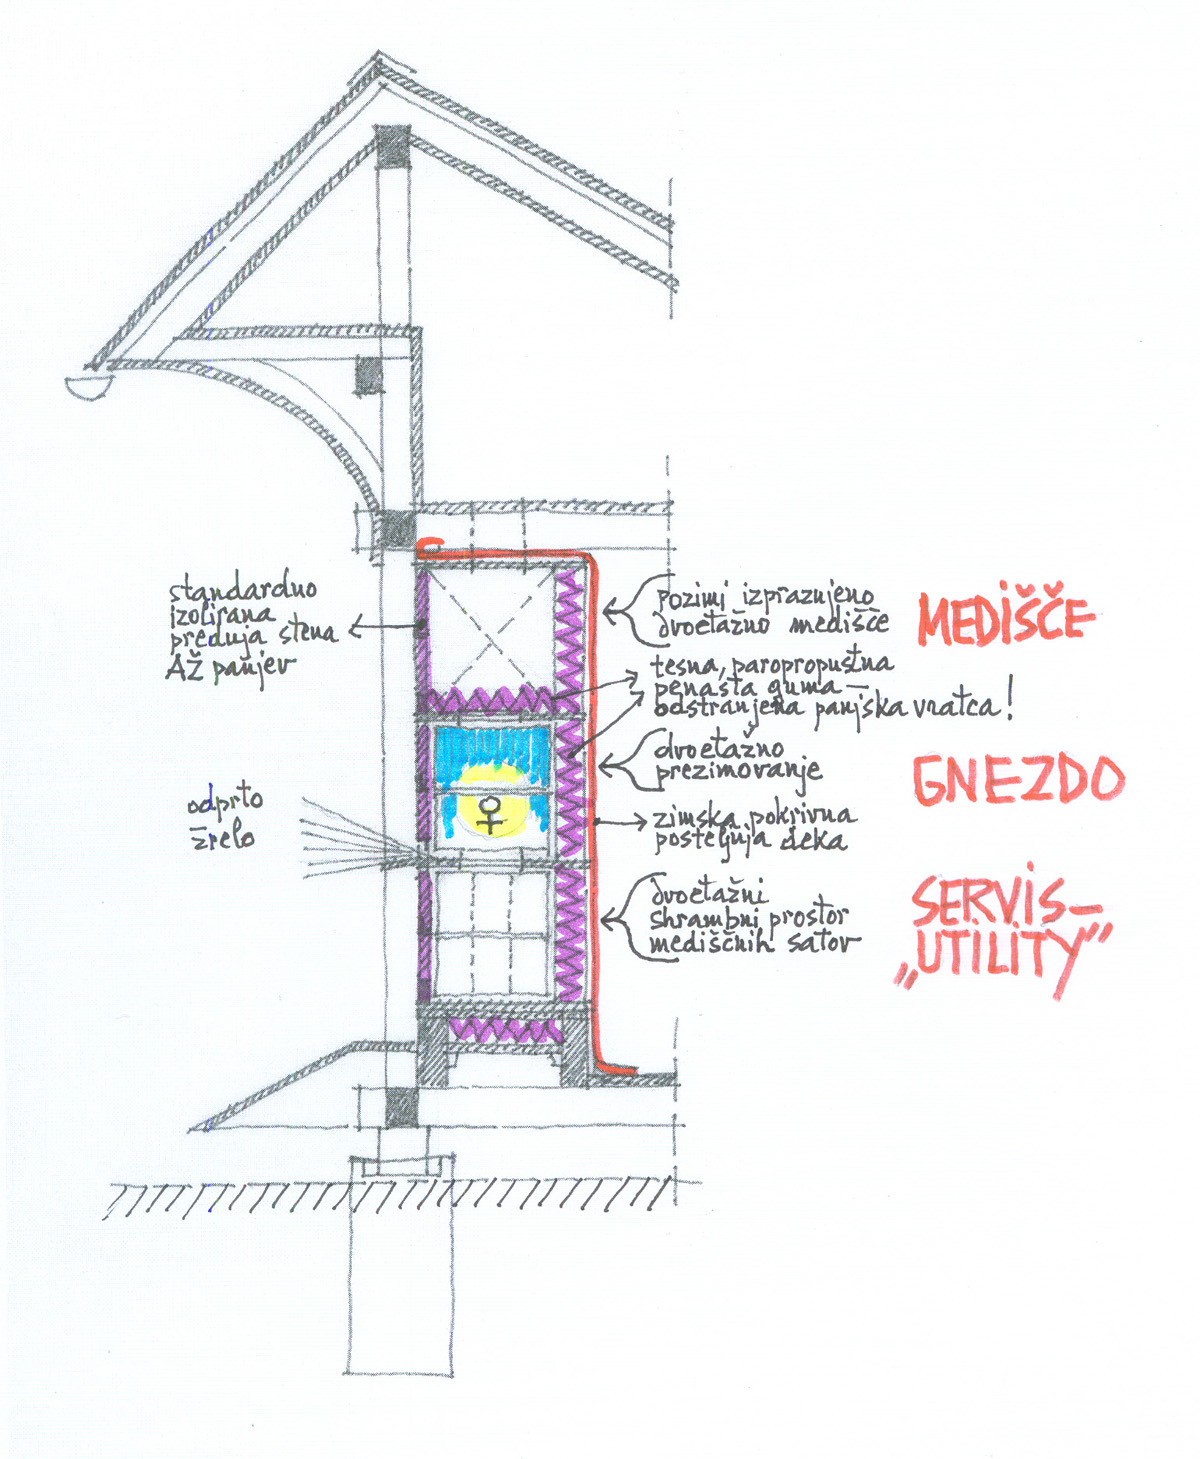 standardno
izolirana
prednja stena
AŽ panjev
odprto
žrelo
pozimi izpraznjeno
dvoetažno medišče
MEDIŠČE
tesna, paropropustna
penasta guma —
odstranjena panjska vratca!
dvoetažno
prezimovanje
GNEZDO
zimska pokrivna
posteljnja deka
dvoetažni
shrambni prostor
mediščnih satov
SERVIS-
„UTILITY”